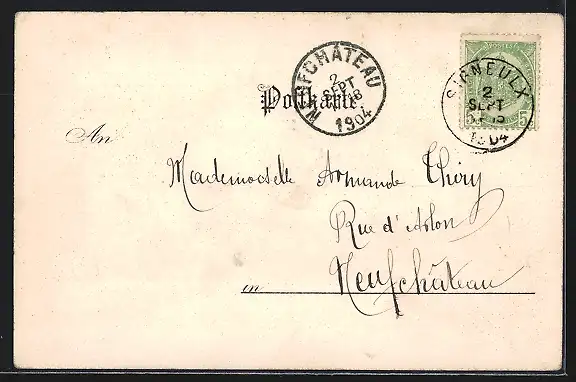 NEUFCHÂTEAU
2
SEPT
18
1904
SIGNEULX
2
SEPT
1904
5
Postkarte.
An
Mademoiselle Armande Thiry
Rue d'Arlon
in Neufchâteau